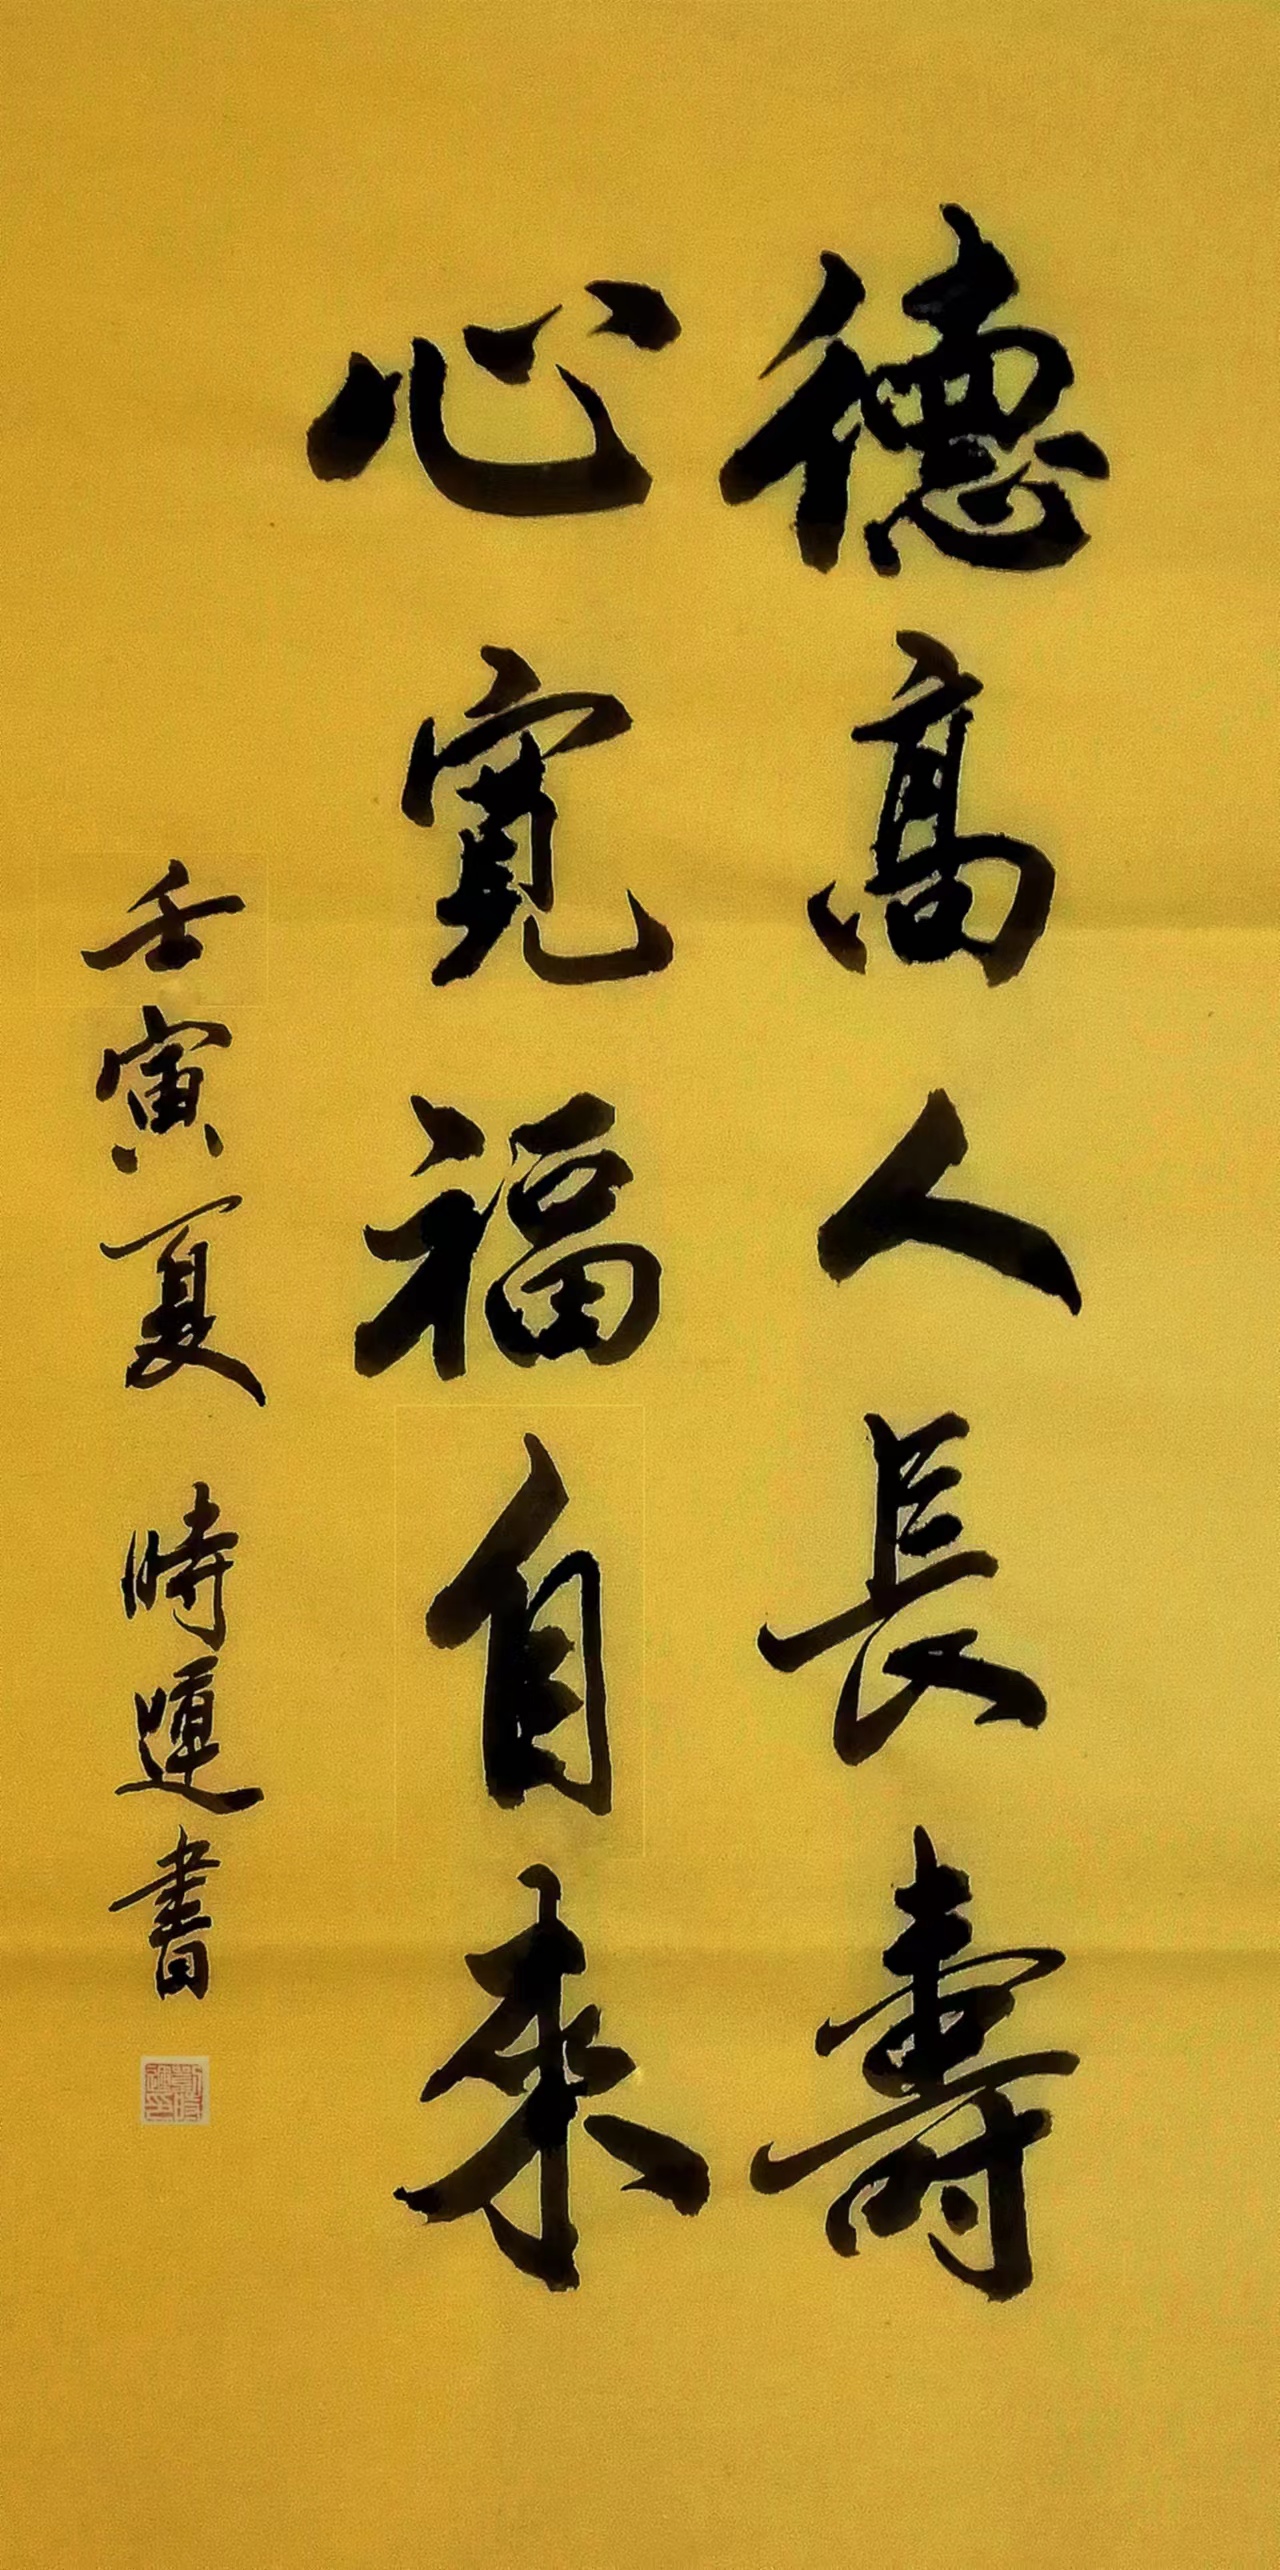 德高人長壽
心寬福自来
壬寅夏 時運書